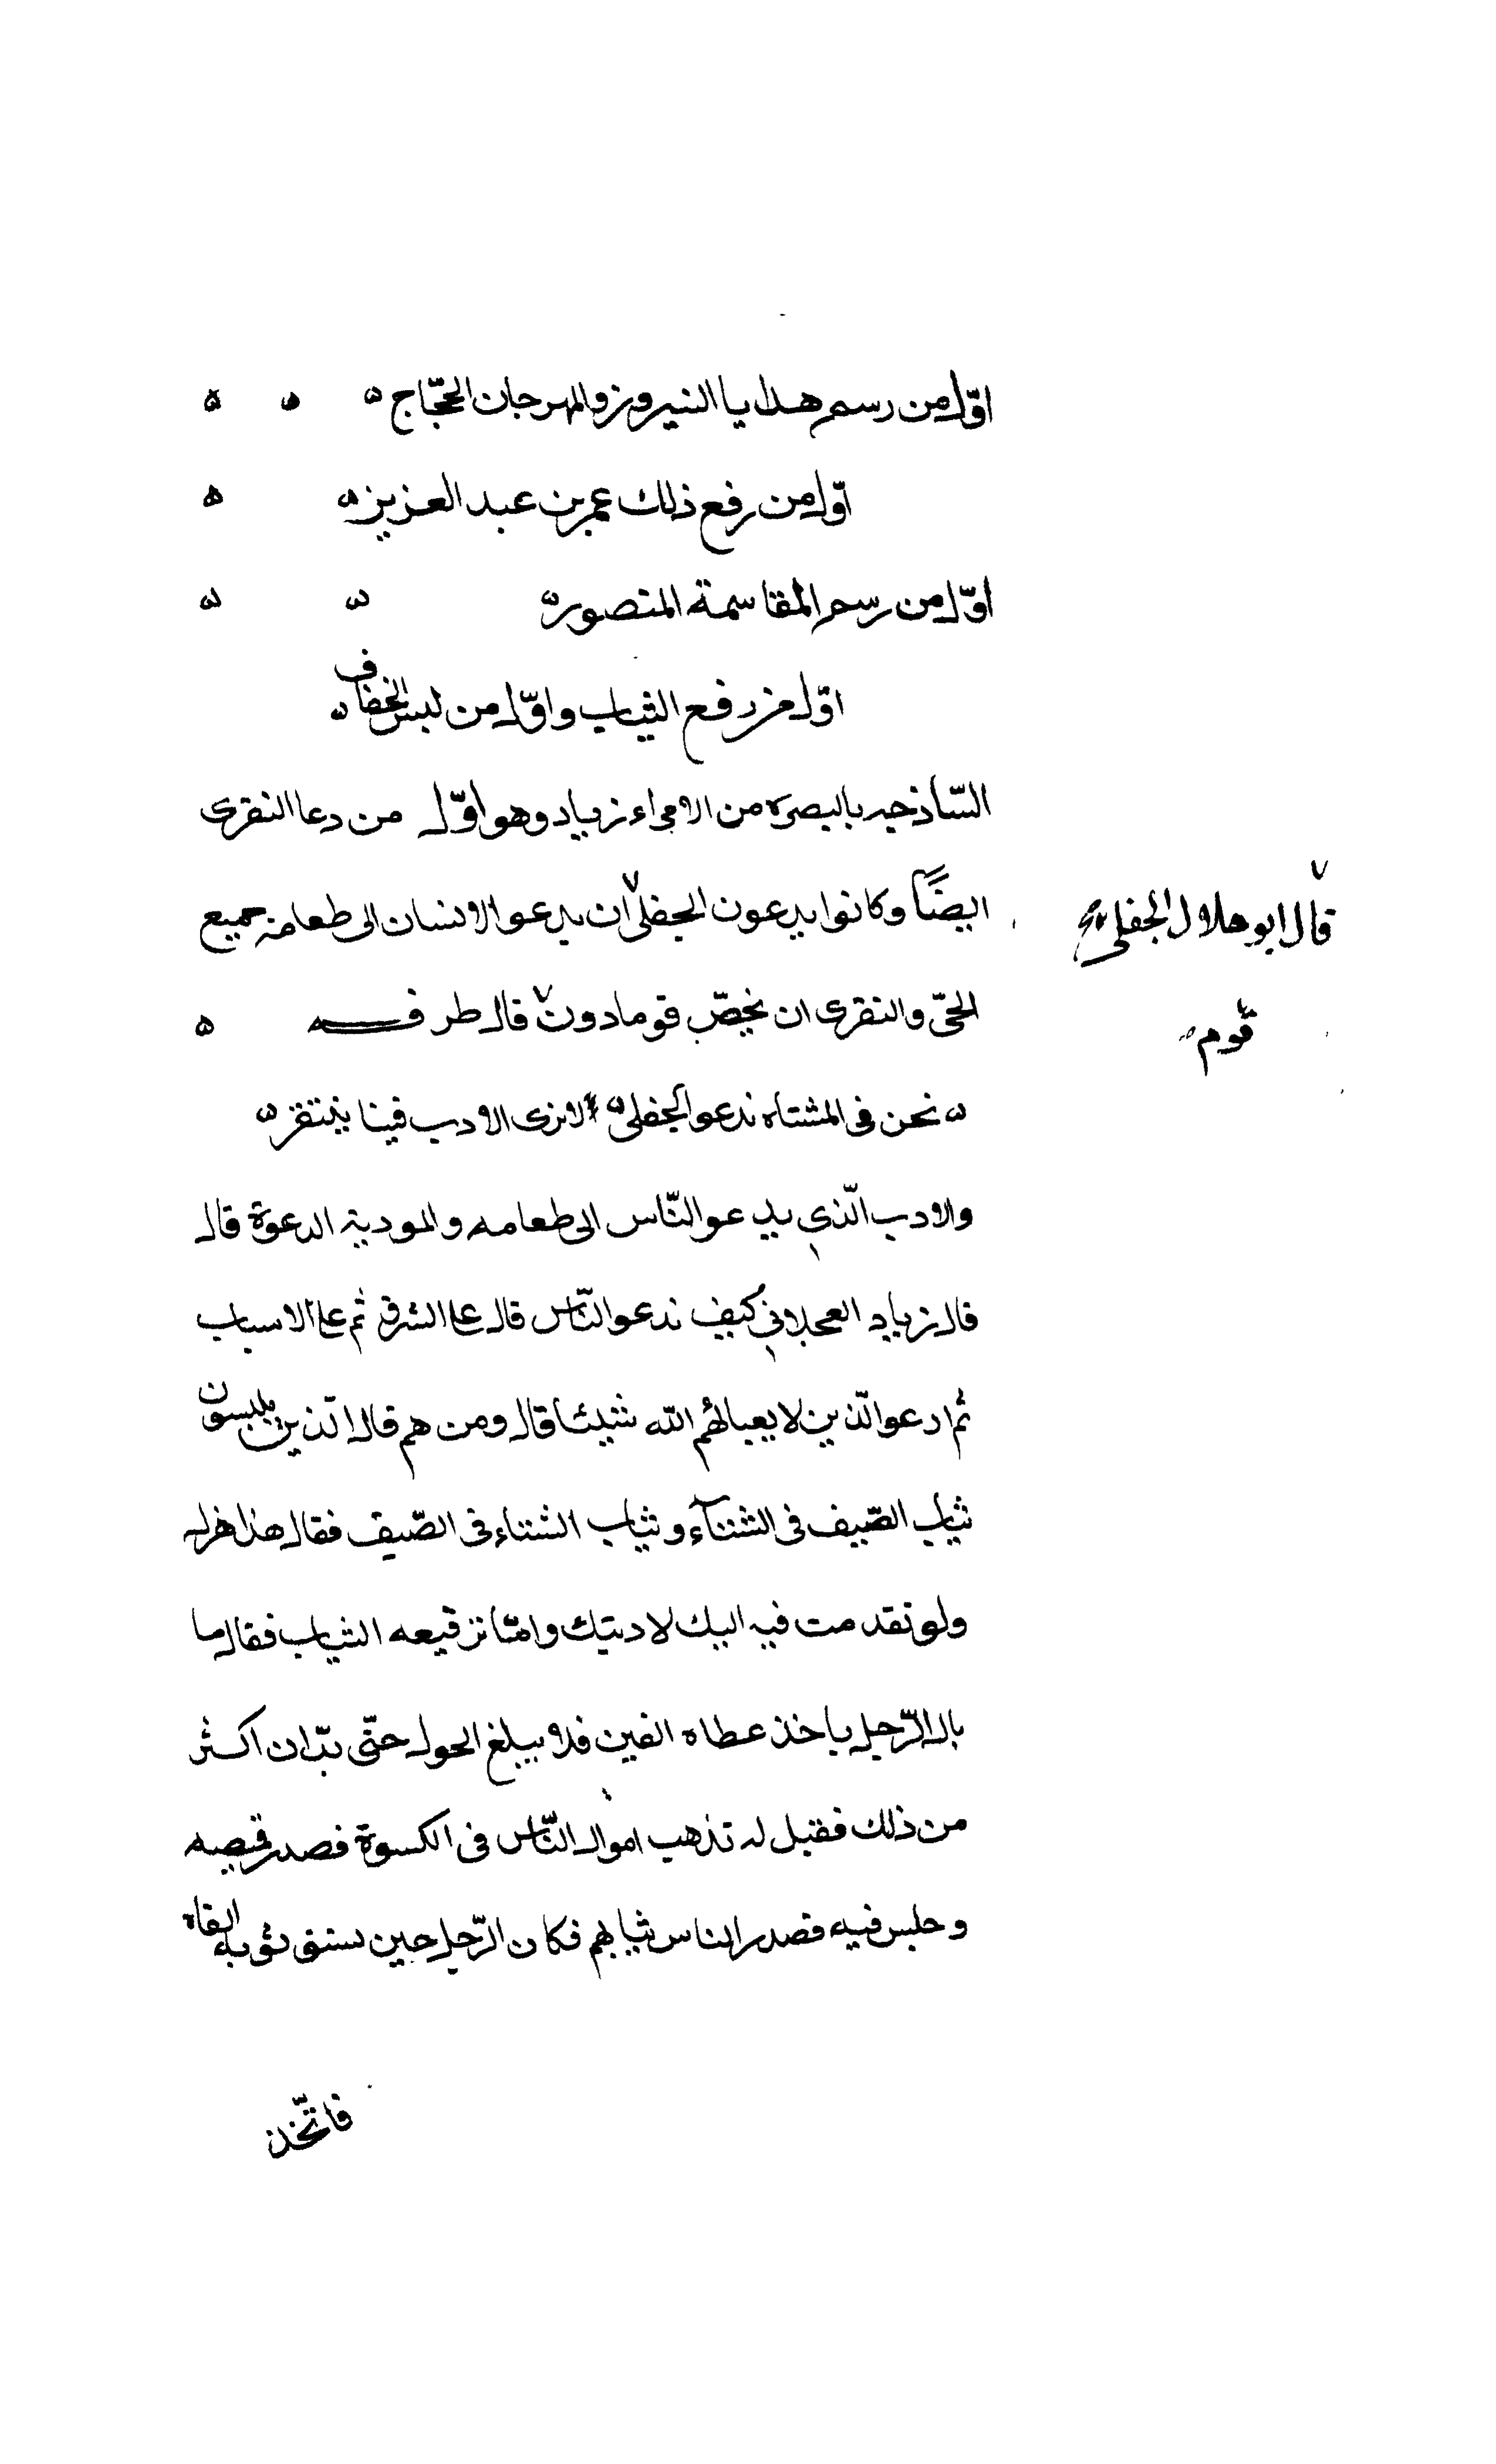 اوّل من رسم هدايا النيروز والمهرجان الحجّاج ه ه ه
اوّل من رفع ذلك عمر بن عبد العزيز ه ه
اوّل من رسم المقاسمة المنصور ه ه ه
اوّل من رقع الثياب واوّل من لبس الخفاف ه
السّاذجيه بالبصره من الامراء زياد وهو اوّل من دعا النقرى
ايضًا وكانوا يدعون الجفلى ان يدعو الانسان الى طعامه جميع
الحىّ والنقرى ان يخصّ قوما دون قال طرفه ه
ه نحن فى المشتاه ندعو الجفلى ه لا نرى الادب فينا ينتقر ه
والادب الّذي يدعو النّاس الى طعامه والمودبة الدعوة قال
قال زياد العجلاني كيف ندعو النّاس قال على الشرف ثم على الاسباب
ثم ادعو الّذين لا يعبا لهم الله شيئا قال ومن هم قال الّذين يلبسون
ثياب الصّيف فى الشتآء وثياب الشتاء فى الصّيف فقال هذا هزل
ولو تقدمت فيه اليك لادبتك وامّا ترقيعه الثياب فقال ما
بال الرّجل ياخذ عطاه الفين فلا يبلغ الحول حتّى يدّان اكثر
من ذلك فقيل له تذهب اموال النّاس فى الكسوة فصدر قميصه
وجلس فيه فصدر الناس ثيابهم فكان الرّجل حين يستق ثوبه القاه
فاتّخذ
قال ابو هلال الجفلى
قوم